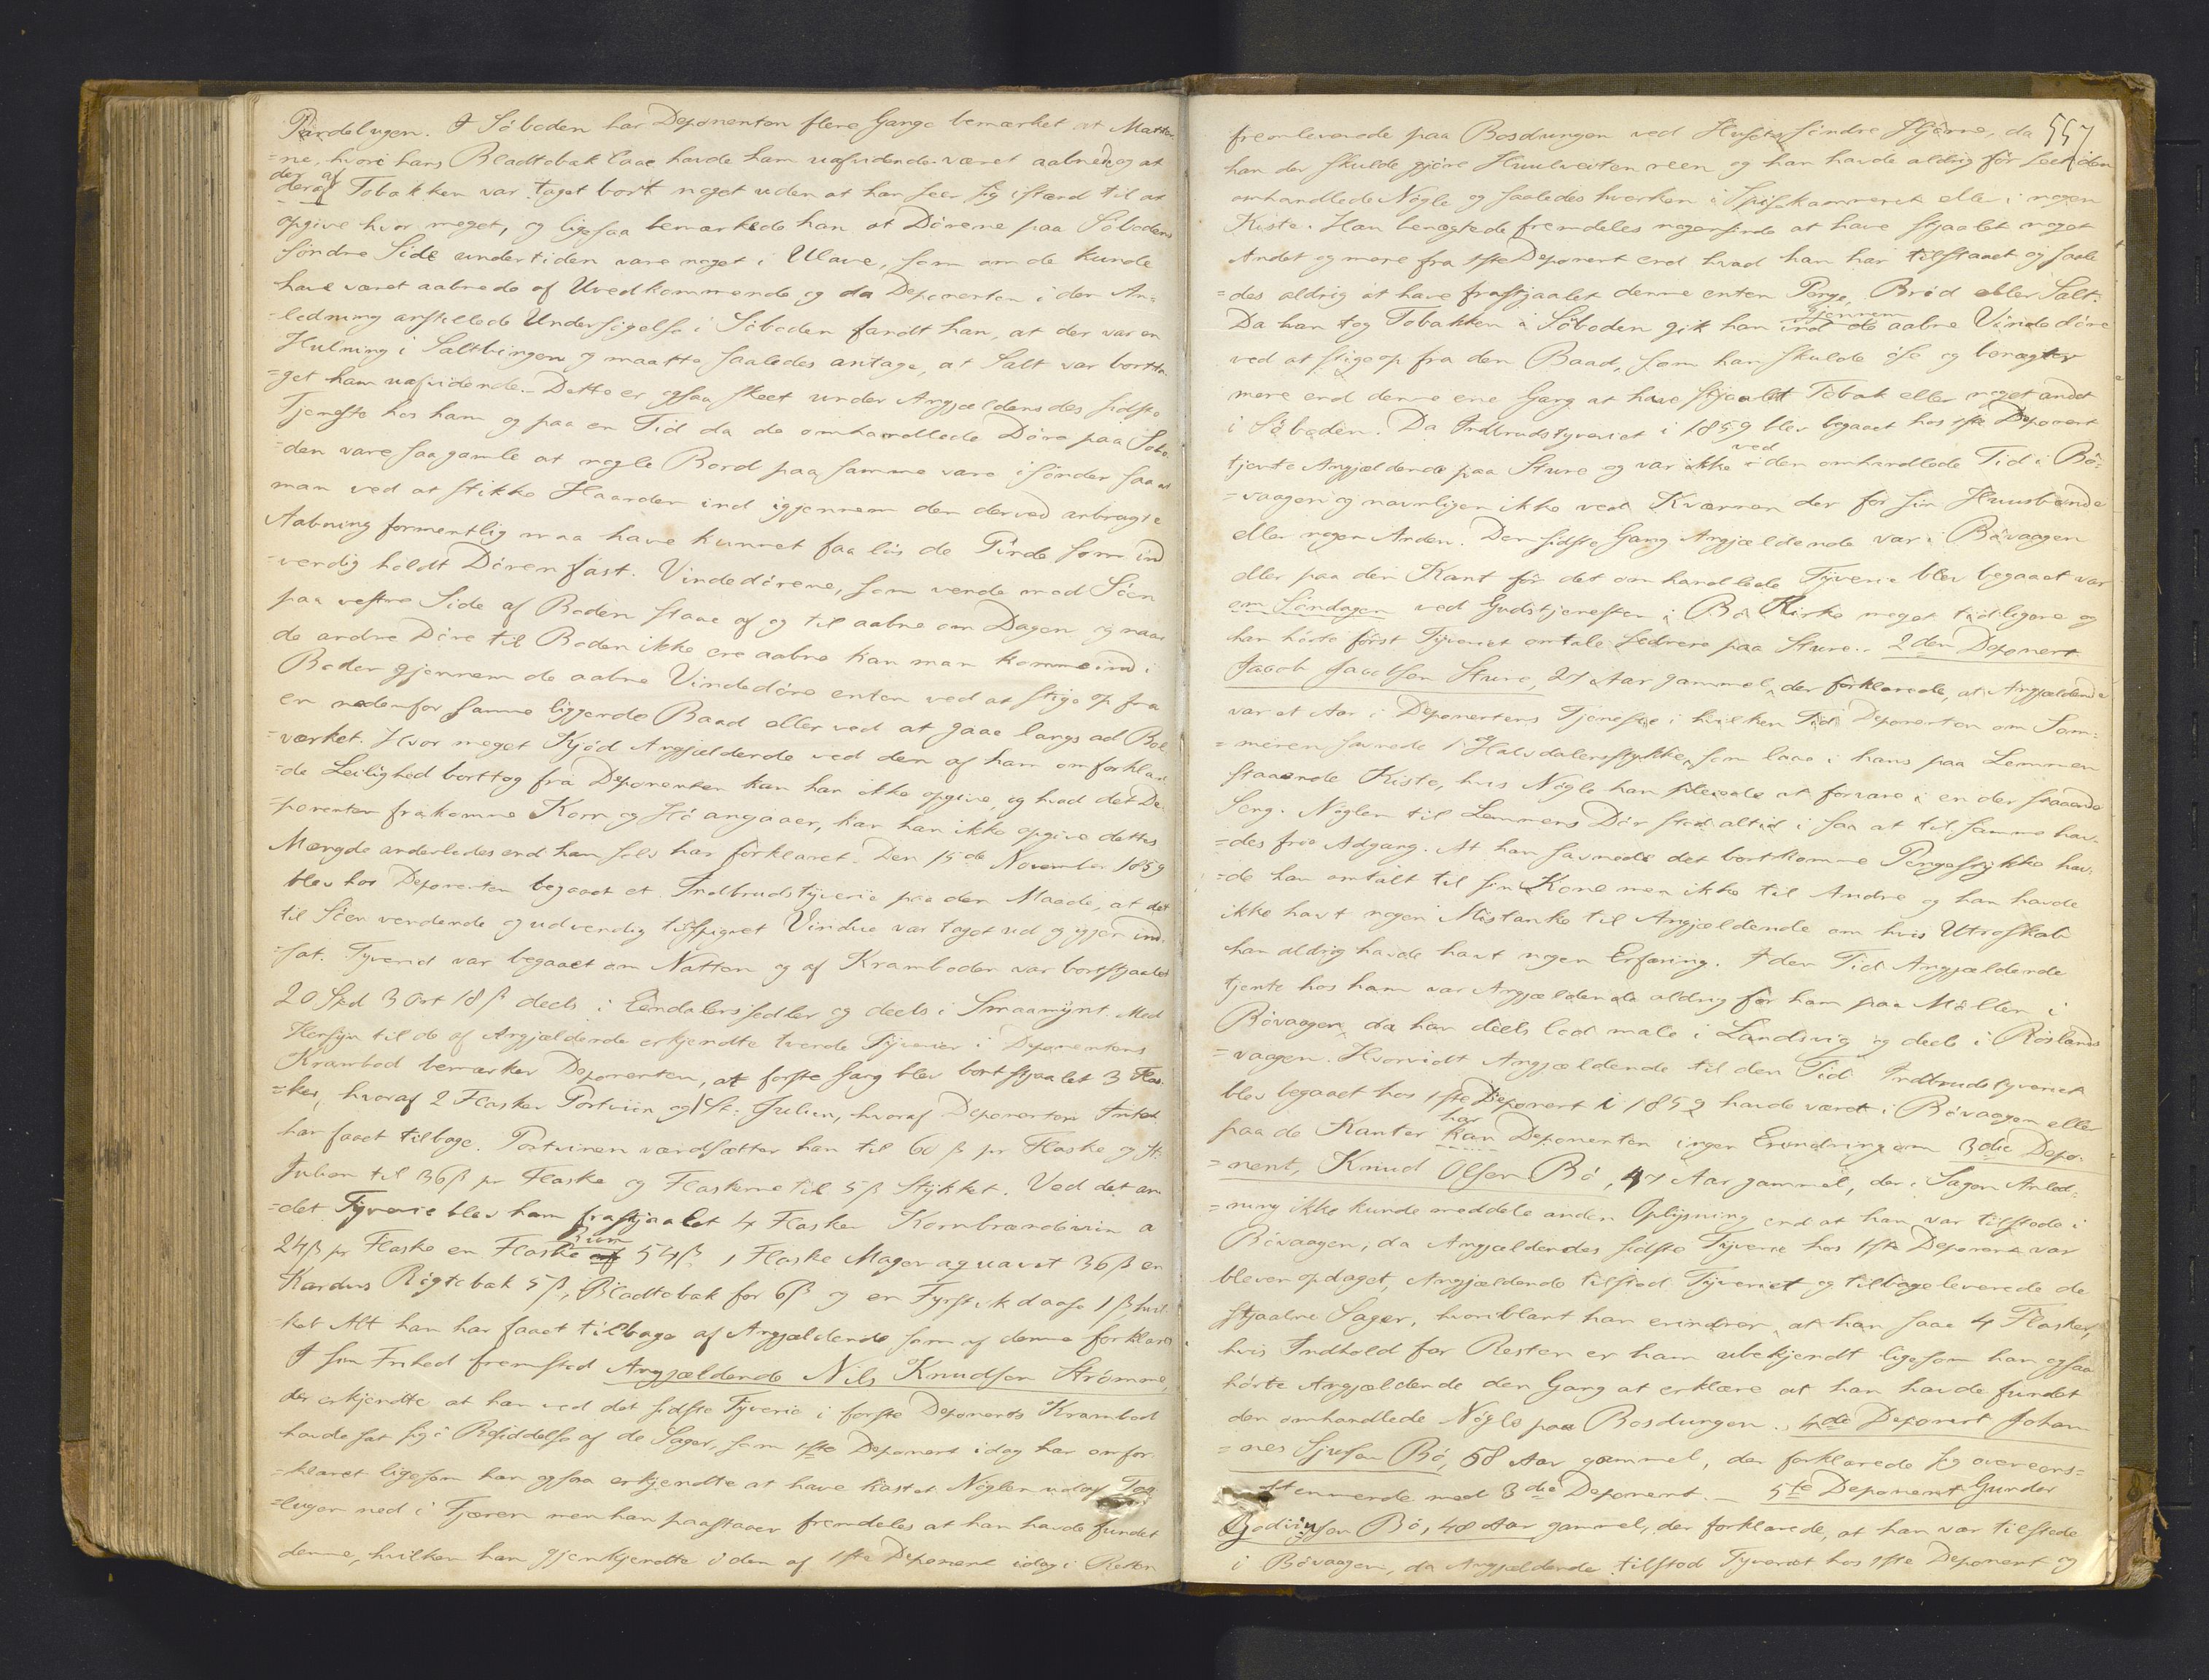 Pardelugen. I Söboden har Deponenten flere Gange bemærket at Matter-
=ne, hvori hans Bladtobak laae havde ham uafvidende været aabnede og at
der af Tobakken var taget bort noget uden at han seer sig istand til at
opgive hvor meget, og ligesaa bemærkede han at Dörene paa Söbodens
söndre Side undertiden vare noget i Ulave, som om de kunde
have været aabnede af Uvedkommende og da Deponenten i den An=
=ledning anstillede Undersögelse i Söboden fandt han, at der var en
Hulning i Saltbingen og maatte saaledes antage, at Salt var bortta-
=get ham uafvidende. Dette er ogsaa skeet under Angjældendes sidste
Tjeneste hos ham og paa en Tid da de omhandlede Döre paa Söbo-
=den vare saa gamle at nogle Bord paa samme vare i sönder saa at
man ved at stikke Haanden ind igjennem den derved anbragte
Aabning formentlig maa have kunnet faa lös de Tinde som ind
=vendig holdt Dören fast. Vindedörene, som vende mod Söen
paa vestre Side af Boden staae af og til aabne om Dagen og naar
de andre Döre til Boden ikke ere aabne kan man komme ind i
Boden gjennem de aabne Vindedöre enten ved at stige op fra
en nedenfor samme liggende Baad eller ved at gaae langs ad Bol-
=værket. Hvor meget Kjöd Angjældende ved den af ham omforklare-
=de Leilighed borttog fra Deponenten kan han ikke opgive, og hvad det De-
=ponenten frakomne Korn og Hö angaaer, kan han ikke opgive dettes
Mængde anderledes end han selv har forklaret. Den 15de November 1859
blev hos Deponenten begaaet et Indbrudstyverie paa den Maade, at det
til Söen vendende og udvendig tilspigret Vindue var taget ud og igjen ind-
=sat. Tyveriet var begaaet om Natten og af Kramboden var bortstjaalet
20 Spd 3 Ort 18 β deels i Eendalerssedler og deels i Smaamynt. Med
Hensyn til de af Angjældende erkjendte tvende Tyverier i Deponentens
Krambod bemærker Deponenten, at forste Gang blev bortstjaalet 3 Flas-
=ker, hvoraf 2 Flasker Portviin og 1 St: Julien, hvoraf Deponenten Intet
har faaet tilbage. Portvinen værdsætter han til 60 β pr Flaske og St:
Julien til 36 β pr Flaske og Flaskerne til 5 β Stykket. Ved det an-
=det Tyverie blev ham frastjaalet 4 Flasker Kornbrændeviin a
24 β pr Flaske en Flaske Rum 54 β, 1 Flaske Mager aqvavit 36 β en
Kardus Rögtobak 5 β, Bladtobak for 6 β og en Fyrstikdaase 1 β, hvil-
=ket Alt han har faaet tilbage af Angjældende som af denne forklaret
I sin Frihed fremstod Angjældende Nils Knudsen Strömme,
der erkjendte at han ved det sidste Tyverie i förste Deponents Krambod
havde sat sig i Besiddelse af de Sager, som 1ste Deponent idag har omfor-
=klaret ligesom han ogsaa erkjendte at have kastet Nöglen ud af
=lugen ned i Fjæren men han paastaaer fremdeles at han havde fundet
denne, hvilken han gjenkjendte i den af 1ste Deponent idag i Retten
557
fremleverede paa Bosdungen ved Husets söndre Hjörne, da
han der skulde gjöre Huulveiten reen og han havde aldrig för seet den
omhandlede Nögle og saaledes hverken i Spisekammeret eller i nogen
Kiste. Han benegtede fremdeles nogensinde at have stjaalet noget
Andet og mere fra 1ste Deponent end hvad han har tilstaaet og saale
=des aldrig at have frastjaalet denne enten Penge, Bröd eller Salt.
Da han tog Tobakken i Söboden gik han ind gjennem de aabne Vindedöre
ved at stige op fra den Baad, som han skulde öse og benegter
mere end denne ene Gang at have stjaalet Tobak eller noget andet
i Söboden. Da Indbrudstyveriet i 1859 blev begaaet hos 1ste Deponent
tjente Angjældende paa Sture og var ikke ved den omhandlede Tid i Bö-
=vaagen og navnligen ikke ved Kværnen der for sin Huusbonde
eller nogen Anden. Den sidste Gang Angjældende var i Bövaagen
eller paa den Kant för det omhandlede Tyverie blev begaaet var
om Söndagen ved Gudstjenesten i Bö Kirke noget tidligere og
han hörte först Tyveriet omtale sednere paa Sture. 2den Deponent
Jacob Jacobsen Sture, 27 Aar gammel, der forklarede, at Angjældende
var et Aar i Deponentens Tjeneste i hvilken Tid Deponenten om Som-
=meren savnede 1 Halvdalersstykke, som laae i hans paa Lemmen
staaende Kiste, hvis Nögle han pleiede at forvare i en der staaende
Seng. Nöglen til Lemmens Dör stod altid i saa at til samme hav-
=des frie Adgang. At han savnede det bortkomne Pengestykke hav-
=de han omtalt til sin Kone men ikke til Andre og han havde
ikke havt nogen Mistanke til Angjældende om hvis Utroskab
han aldrig havde havt nogen Erfaring. I den Tid Angjældende
tjente hos ham var Angjældende aldrig for ham paa Möllen i
Bövaagen, da han deels lod male i Landsvig og deels i Röslands
=vaagen. Hvorvidt Angjældende til den Tid Indbrudstyveriet
blev begaaet hos 1ste Deponent i 1859 havde været i Bövaagen eller
paa de Kanter har Deponenten ingen Erindring om 3die Depo-
=nent, Knud Olsen Bö, 47 Aar gammel, der i Sagen Anled-
=ning ikke kunde meddele anden Oplysning end at han var tilstede i
Bövaagen, da Angjældendes sidste Tyverie hos 1ste Deponent var
bleven opdaget, Angjældende tilstod Tyveriet og tilbageleverede de
stjaalne Sager, hvoriblant han erindrer, at han saae 4 Flasker,
hvis Indhold for Resten er ham ubekjendt ligesom han ogsaa
hörte Angjældende den Gang at erklære at han havde fundet
den omhandlede Nögle paa Bosdungen. 4de Deponent Johan-
=nes Sjursen Bö, 58 Aar gammel, der forklarede sig overeens=
stemmende med 3die Deponent. 5te Deponent Gunder
Bö, 48 Aar gammel, der forklarede, at han var tilstede
i Bövaagen, da Angjældende tilstod Tyveriet hos 1ste Deponent og